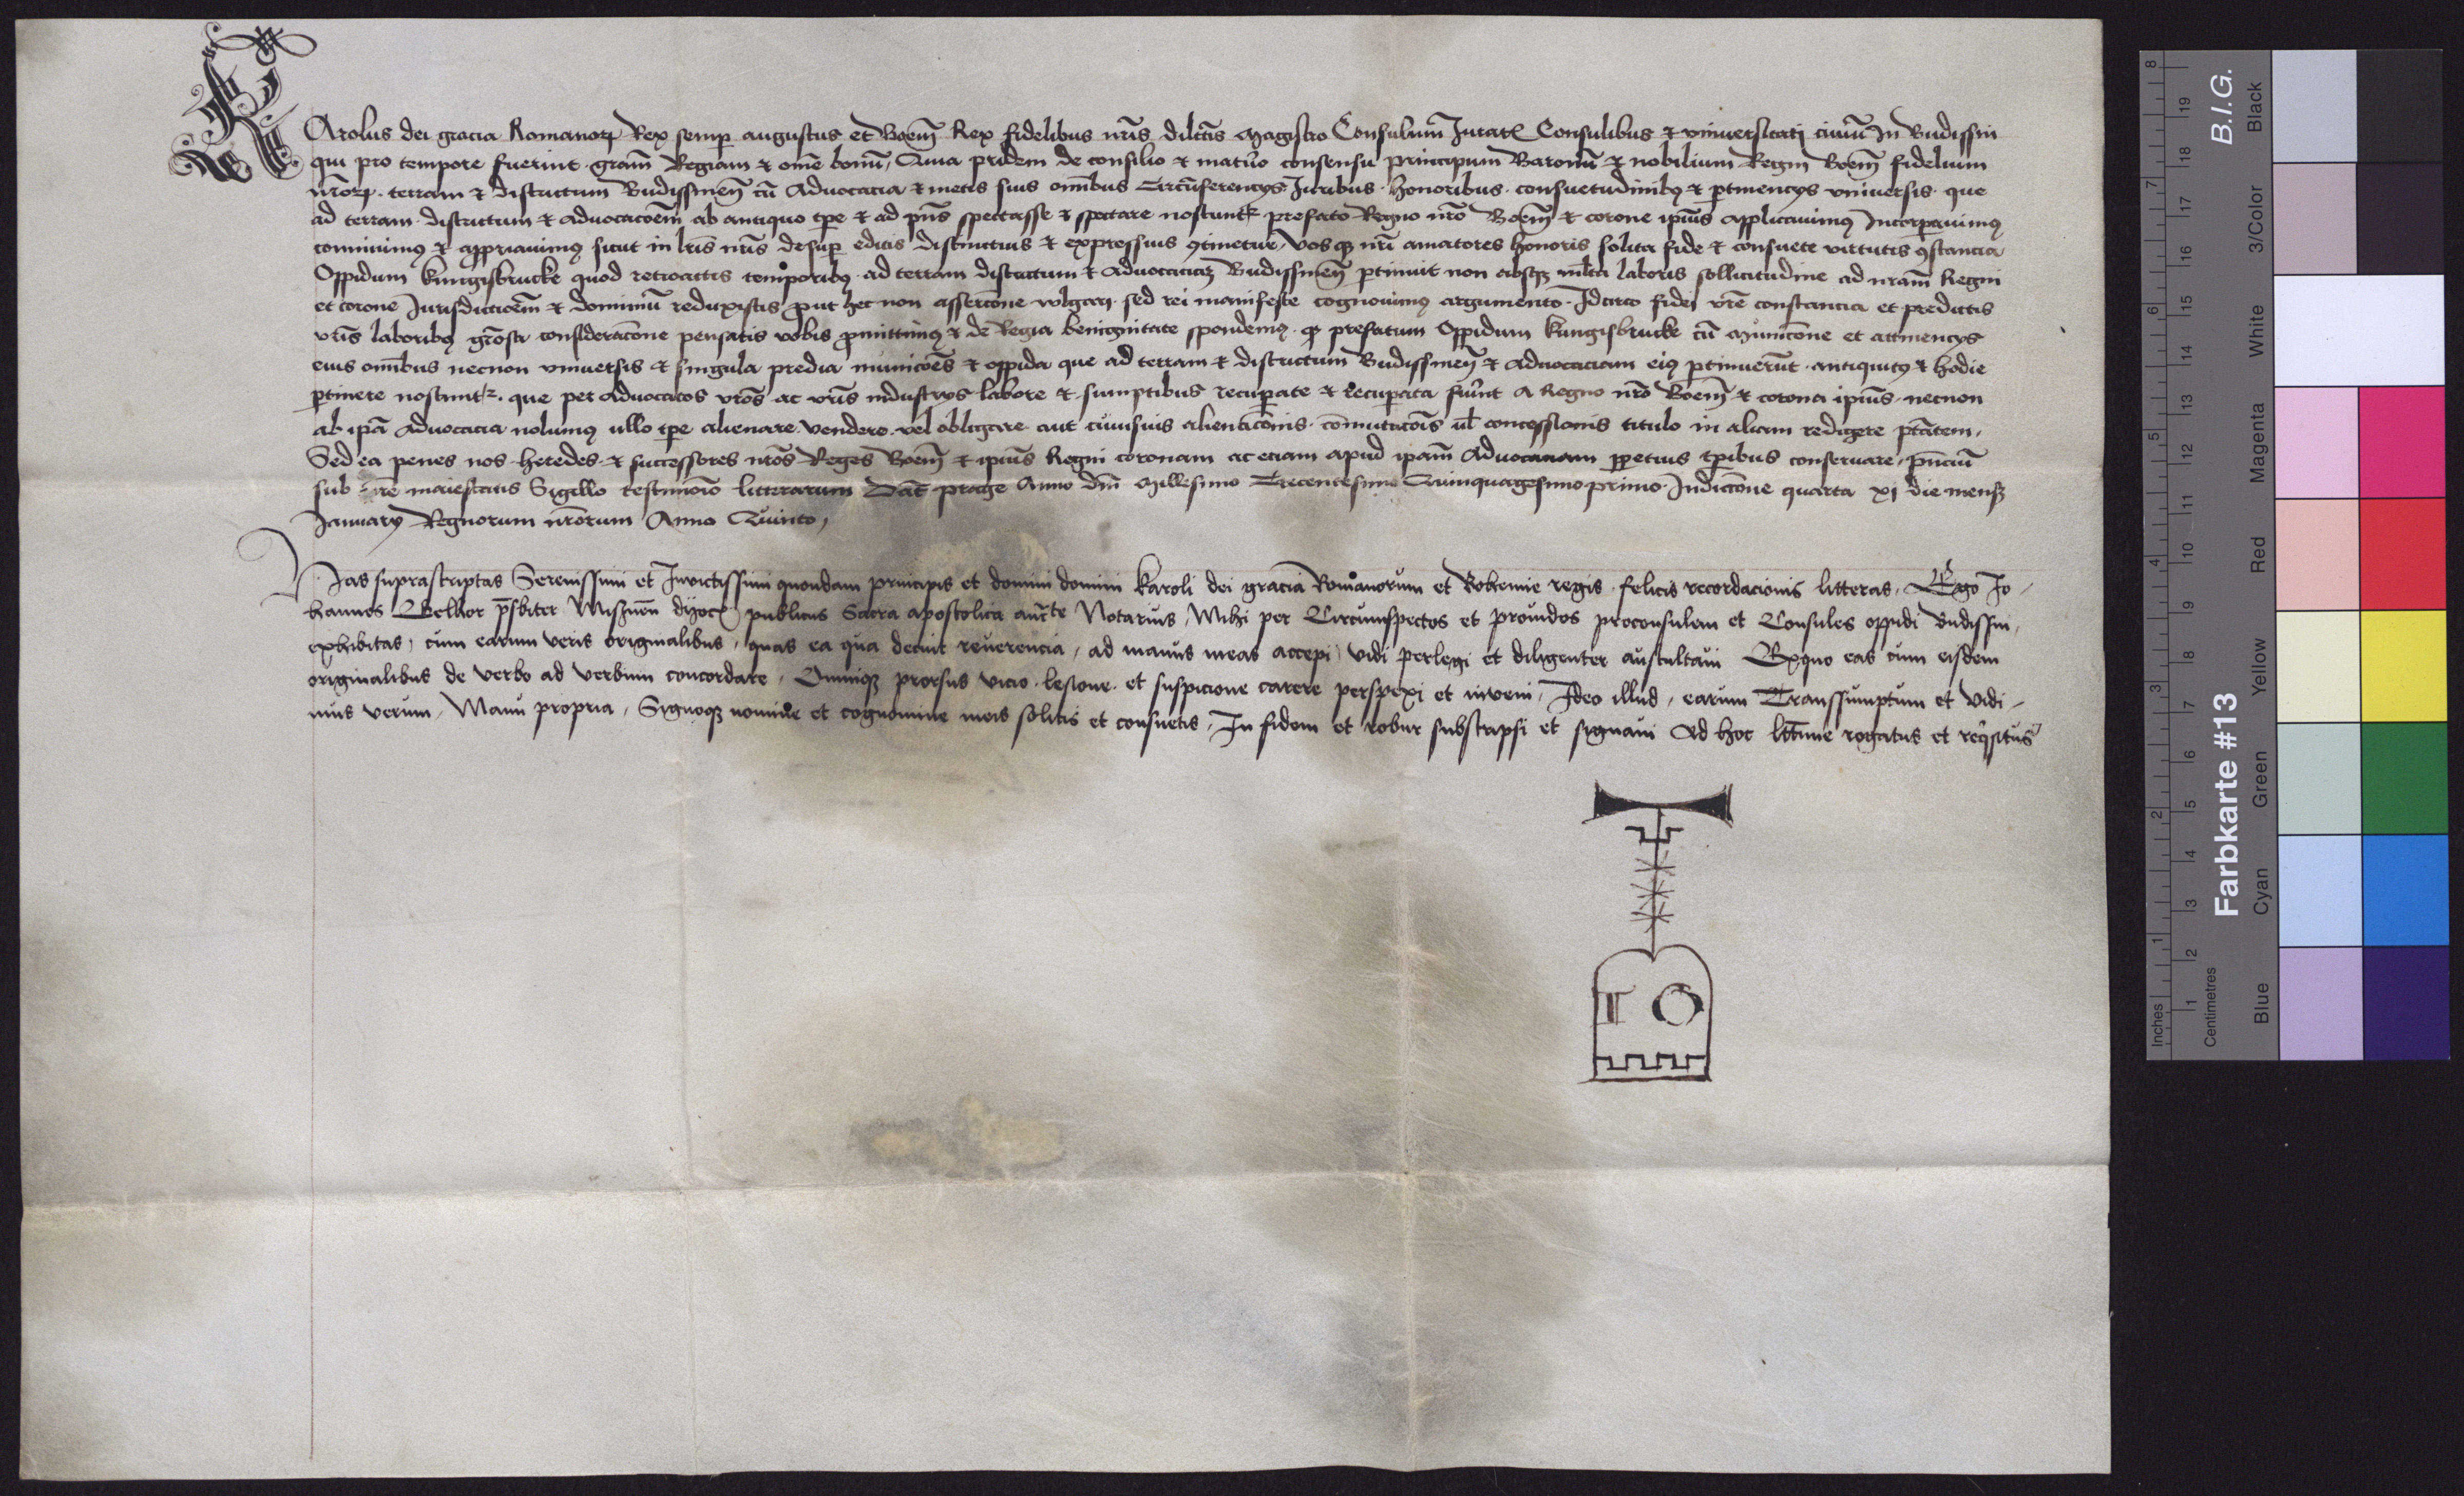 KArolus dei gracia Romanoꝝ Rex semp augustus et Boem̄ Rex fidelibus nr̄is dilc̄tis Magistro Consulum̄ Iurat Consulibus & vniuersitati ciuiū In Budissin
qui pro tempore fuerint gram̄ Regiam & om̄e bonū, Cum pridem de consilio & maturo consensu principum Baronū & nobilium Regni Boem̄ fidelium
nr̄oꝝ. terram & districtum Budissineñ cū Aduocacia & metis suis om̄ibus Circūferencijs Iuribus. honoribus. consuetudinibꝫ & ptinencijs vniuersis. que
ad terram districtum & aduocacoem̄ ab antiquo tpe & ad pn̄s spectasse & spectare noscuntr prefato Regno nr̄o Boem̄ & corone ipius applicauimꝰ Incorpauimꝰ
coniunimꝰ & appriauimꝰ sicut in lr̄is nr̄is desup editis distinctius & expressius ꝯtinetur, Vos qꝫ nr̄i amatores honoris solita fide & consuete virtutis ꝯstancia
Oppidum kungisbrucke quod retroactis temporibꝫ ad terram districtum & aduocaciaꝫ Budissineñ ptinuit non absqꝫ ml̄ta laboris sollicitudine ad nr̄am Regni
et corone Iurisdiccioem̄ & dominiū reduxistis put hec non assercōne vulgari sed rei manifeste cognouimꝰ argumento. Idcirco fidei vr̄e constancia et predictis
vr̄is laboribꝫ gr̄osa consideracōne pensatis vobis pmittimꝰ & de Regia benignitate spondemꝰ. qꝫ prefatum Oppidum kungisbrucke cū Municōne et attinencijs
eius om̄ibus necnon vniuersis & singula predia municōes & oppida que ad terram & districtum Budissineñ & aduocaciam eiꝰ ptinuerūt antiquitꝰ & hodie
ptinere noscuntr. que per aduocatos vr̄os ac vr̄is industrijs labore & sumptibus recupate & recupata fuint a Regno nr̄o Boem̄ & corona ipius necnon
ab ipā aduocacia nolumꝰ ullo tpe alienare. vendere. vel obligare aut cuiusuis alienacōnis. cōmutacōis ul̄ concessionis titulo in aliam redigere ptātem,
Sed ea penes nos heredes & successores nr̄os Reges Boem̄ & ipius Regni coronam ac eciam apud ipam̄ aduocaciam ppetuis tpibus conseruare, pn̄ciū
sub nr̄e maiestatis Sigillo testimoio litterarum Dat prage Anno dn̄i Millesimo Trecentesimo Quinquagesimo primo Indiccōne quarta xj die mensꝫ
January Regnorum nr̄orum Anno Quinto,
Has suprascriptas Serenissimi et Inuictissimi quondam principis et domini domini Karoli dei gracia Romanorum et Bohemie regis felicis recordacionis litteras, Ego Jo-
hannes Gelhor pr̄sbiter Misznen̄ dyoc publicus Sacra apostolica auc̄te Notarius, Mihi per Circumspectos et prouidos proconsulem et Consules oppidi Budissin,
exhibitas, cum earum veris originalibus, quas ea qua decuit reuerencia, ad manus meas accepi, vidi perlegi et diligenter auscultaui Exquo eas cum eisdem
originalibus de verbo ad verbum concordare, Omniqꝫ prorsus vicio. lesione. et suspicione carere perspexi et inueni, Ideo illud, earum Transsumptum et Vidi-
mus verum, Manu propria, Signoqꝫ nomine et cognomine meis solitis et consuetis, In fidem et robur subscripsi et signaui Ad hoc lt̄ime rogatus et reqsitus
B.I.G.
Farbkarte #13
Inches 1 2 3 4 5 6 7 8
Centimetres 1 2 3 4 5 6 7 8 9 10 11 12 13 14 15 16 17 18 19
Blue Cyan Green Yellow Red Magenta White 3/Color Black